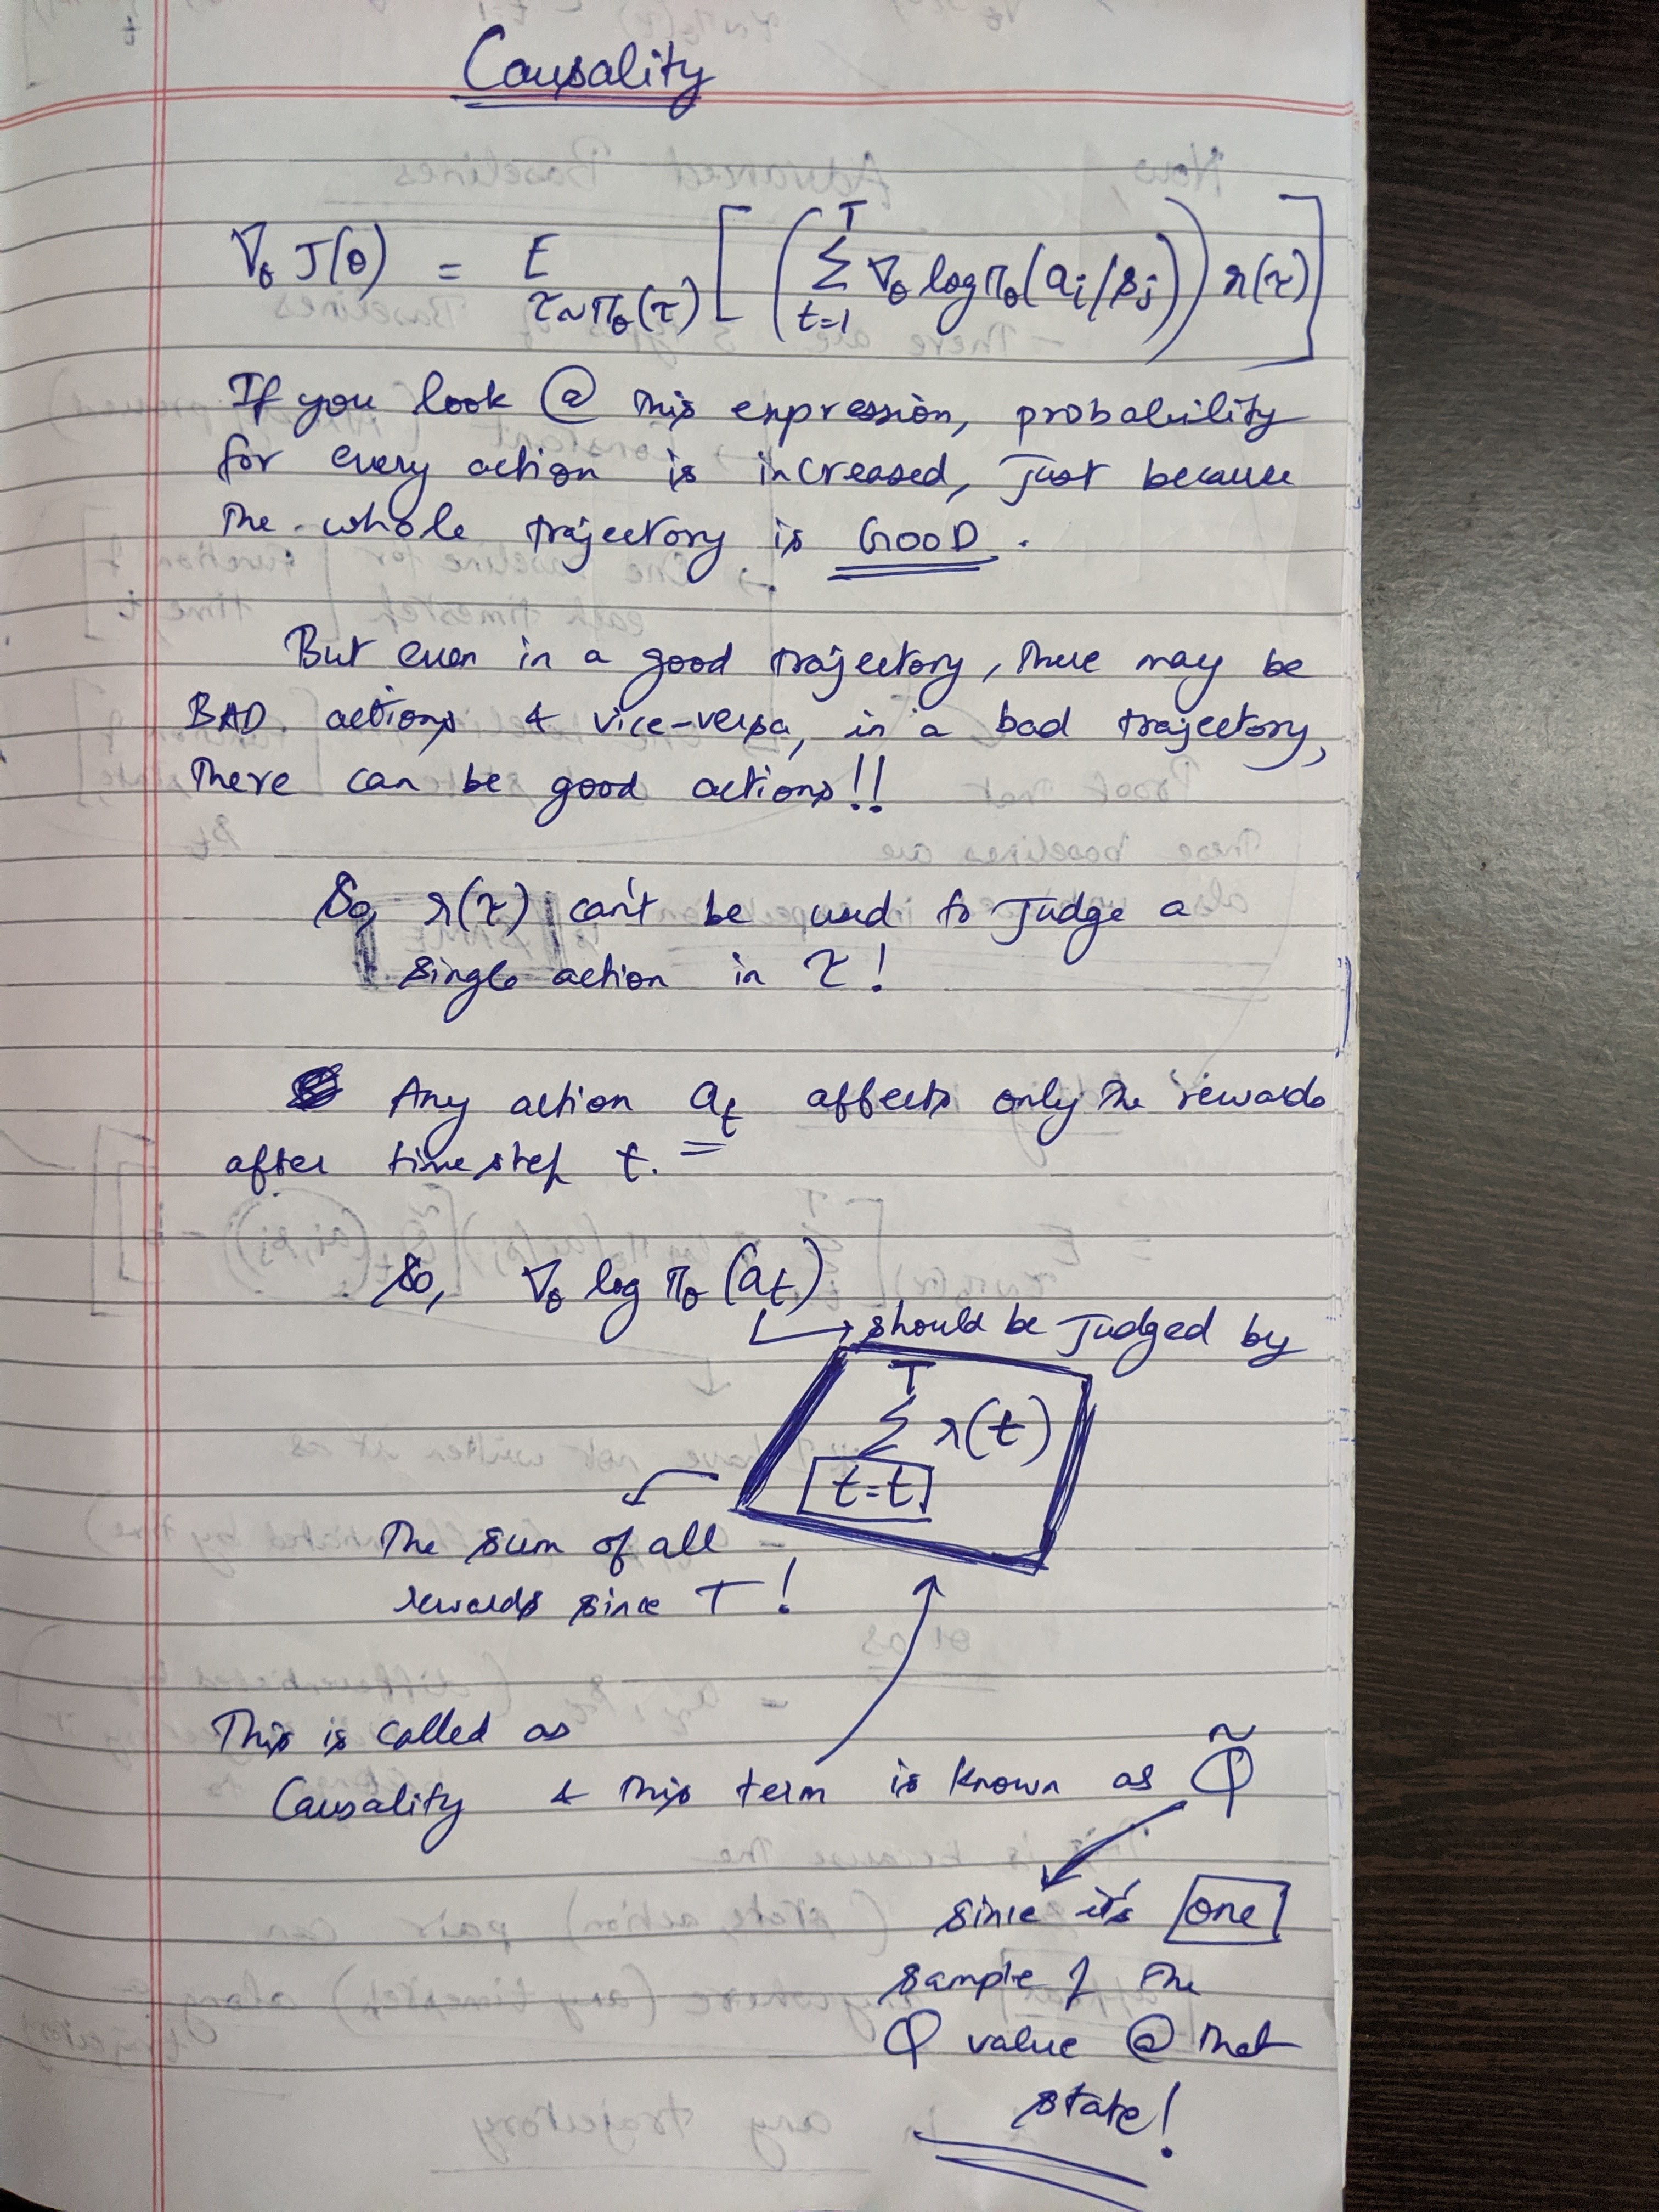 Causality
∇θ J(θ) = E τ∼πθ(τ) [ ( T Σ t=1 ∇θ log πθ(ai/sj) ) r(τ) ]
If you look @ this expression, probability
for every action is increased, just because
the whole trajectory is GOOD.
But even in a good trajectory, there may be
BAD actions & vice-versa, in a bad trajectory,
there can be good actions!!
So, r(τ) can't be used to judge a
single action in τ!
Any action at affects only the rewards
after timestep t.
So, ∇θ log πθ (at)
should be judged by
T Σ t=t r(t)
The sum of all
rewards since T!
This is called as
Causality & this term is known as Q̃
since it's one
sample of the
Q value @ that
state!